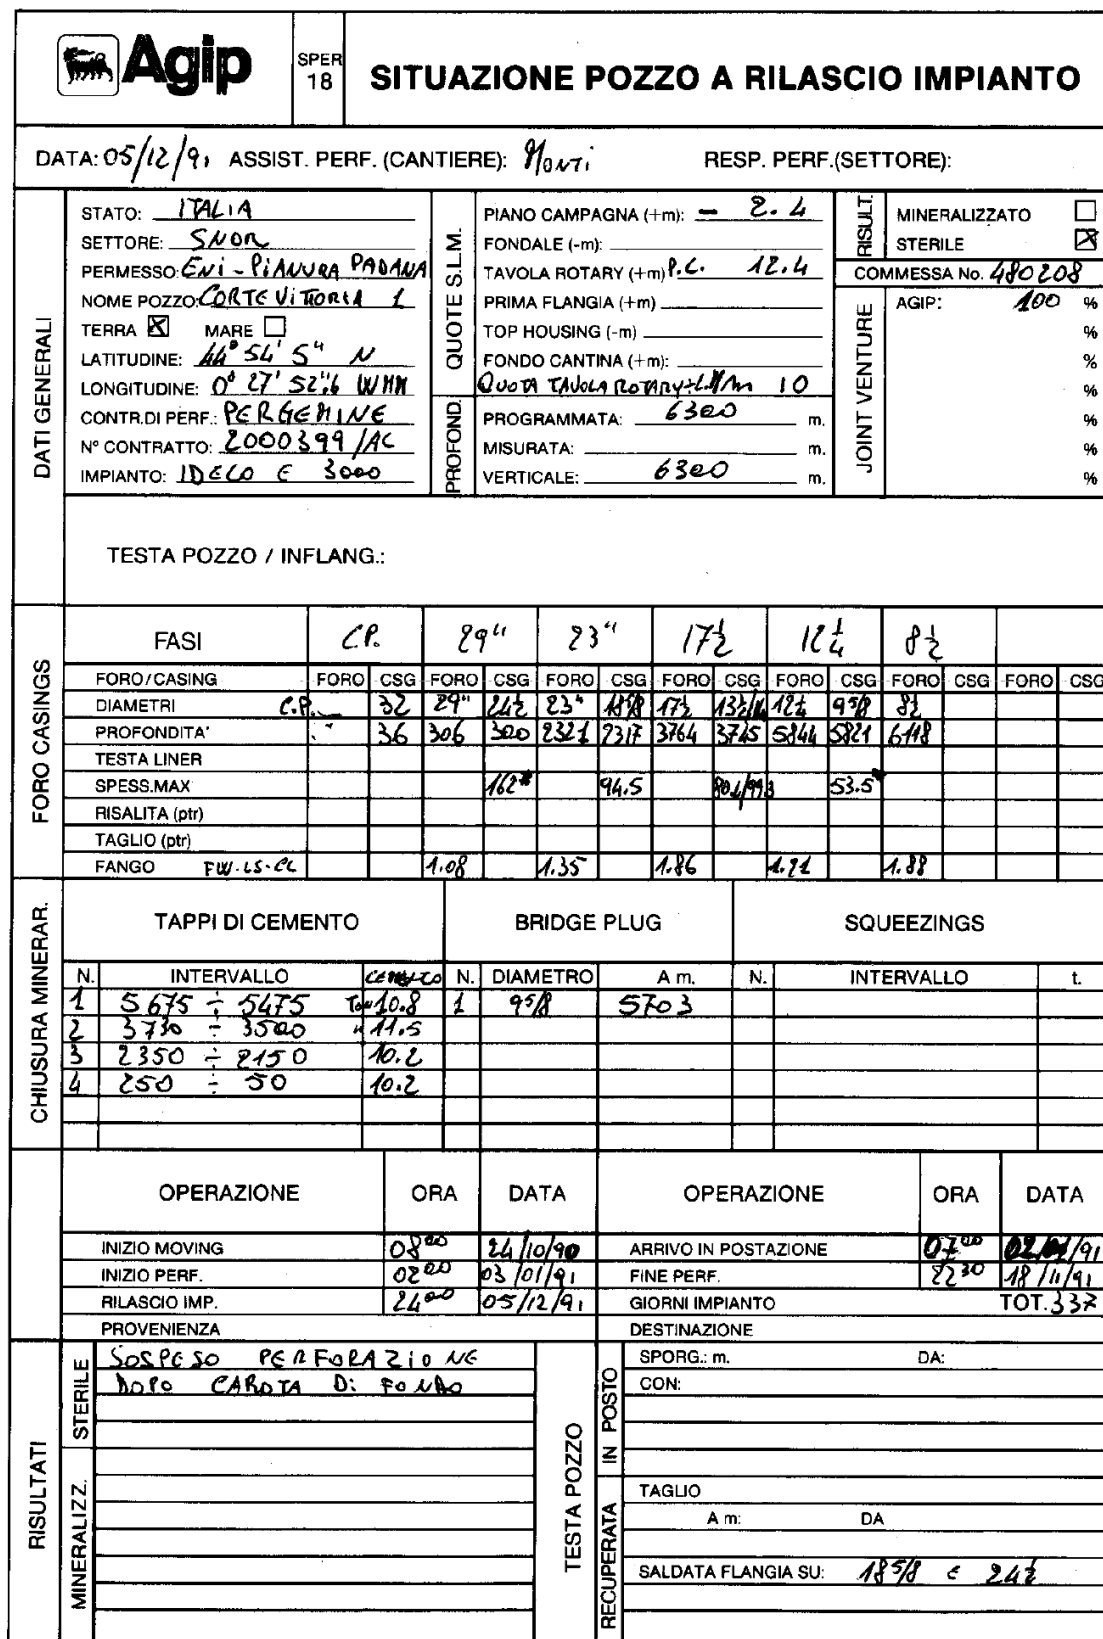 Agip SPER 18 SITUAZIONE POZZO A RILASCIO IMPIANTO
DATA: 05/12/91 ASSIST. PERF. (CANTIERE): Monti RESP. PERF.(SETTORE):
DATI GENERALI
STATO: ITALIA
SETTORE: SNOR
PERMESSO: ENI - PIANURA PADANA
NOME POZZO: CORTE VITTORIA 1
TERRA ☒ MARE ☐
LATITUDINE: 44° 54' 5" N
LONGITUDINE: 0° 27' 52"6 W MM
CONTR.DI PERF.: PERGEMINE
N° CONTRATTO: 2000399/AC
IMPIANTO: IDECO E 3000
QUOTE S.L.M.
PIANO CAMPAGNA (+m): - 2.4
FONDALE (-m):
TAVOLA ROTARY (+m) P.C. 12.4
PRIMA FLANGIA (+m)
TOP HOUSING (-m)
FONDO CANTINA (+m):
QUOTA TAVOLA ROTARY 10
PROFOND.
PROGRAMMATA: 6300 m.
MISURATA: m.
VERTICALE: 6300 m.
RISULT.
MINERALIZZATO ☐
STERILE ☒
COMMESSA No. 480208
JOINT VENTURE
AGIP: 100 %
%
%
%
%
%
%
TESTA POZZO / INFLANG.:
FORO CASINGS
FASI C.P. 29" 23" 17½ 12¼ 8½
FORO/CASING FORO CSG FORO CSG FORO CSG FORO CSG FORO CSG FORO CSG FORO CSG
DIAMETRI C.P. 32 29" 24½ 23" 18⅝ 17½ 12¼ 9⅝ 8½
PROFONDITA' 36 306 300 2321 2317 3764 3745 5844 5821 6118
TESTA LINER
SPESS.MAX 162# 94.5 53.5#
RISALITA (ptr)
TAGLIO (ptr)
FANGO FW-LS-CL 1.08 1.35 1.86 1.21 1.88
CHIUSURA MINERAR.
TAPPI DI CEMENTO BRIDGE PLUG SQUEEZINGS
N. INTERVALLO CEMENTO N. DIAMETRO A m. N. INTERVALLO t.
1 5675 ÷ 5475 Ton 10.8 1 9⅝ 5703
2 3730 ÷ 3500 " 11.5
3 2350 ÷ 2150 10.2
4 250 ÷ 50 10.2
OPERAZIONE ORA DATA OPERAZIONE ORA DATA
INIZIO MOVING 08⁰⁰ 24/10/90 ARRIVO IN POSTAZIONE 07⁰⁰ 02/01/91
INIZIO PERF. 02⁰⁰ 03/01/91 FINE PERF. 22³⁰ 18/11/91
RILASCIO IMP. 24⁰⁰ 05/12/91 GIORNI IMPIANTO TOT. 337
PROVENIENZA DESTINAZIONE
RISULTATI
STERILE
SOSPESO PERFORAZIONE
DOPO CAROTA DI FONDO
MINERALIZZ.
TESTA POZZO
IN POSTO
SPORG.: m. DA:
CON:
RECUPERATA
TAGLIO
A m: DA
SALDATA FLANGIA SU: 18⅝ E 24½